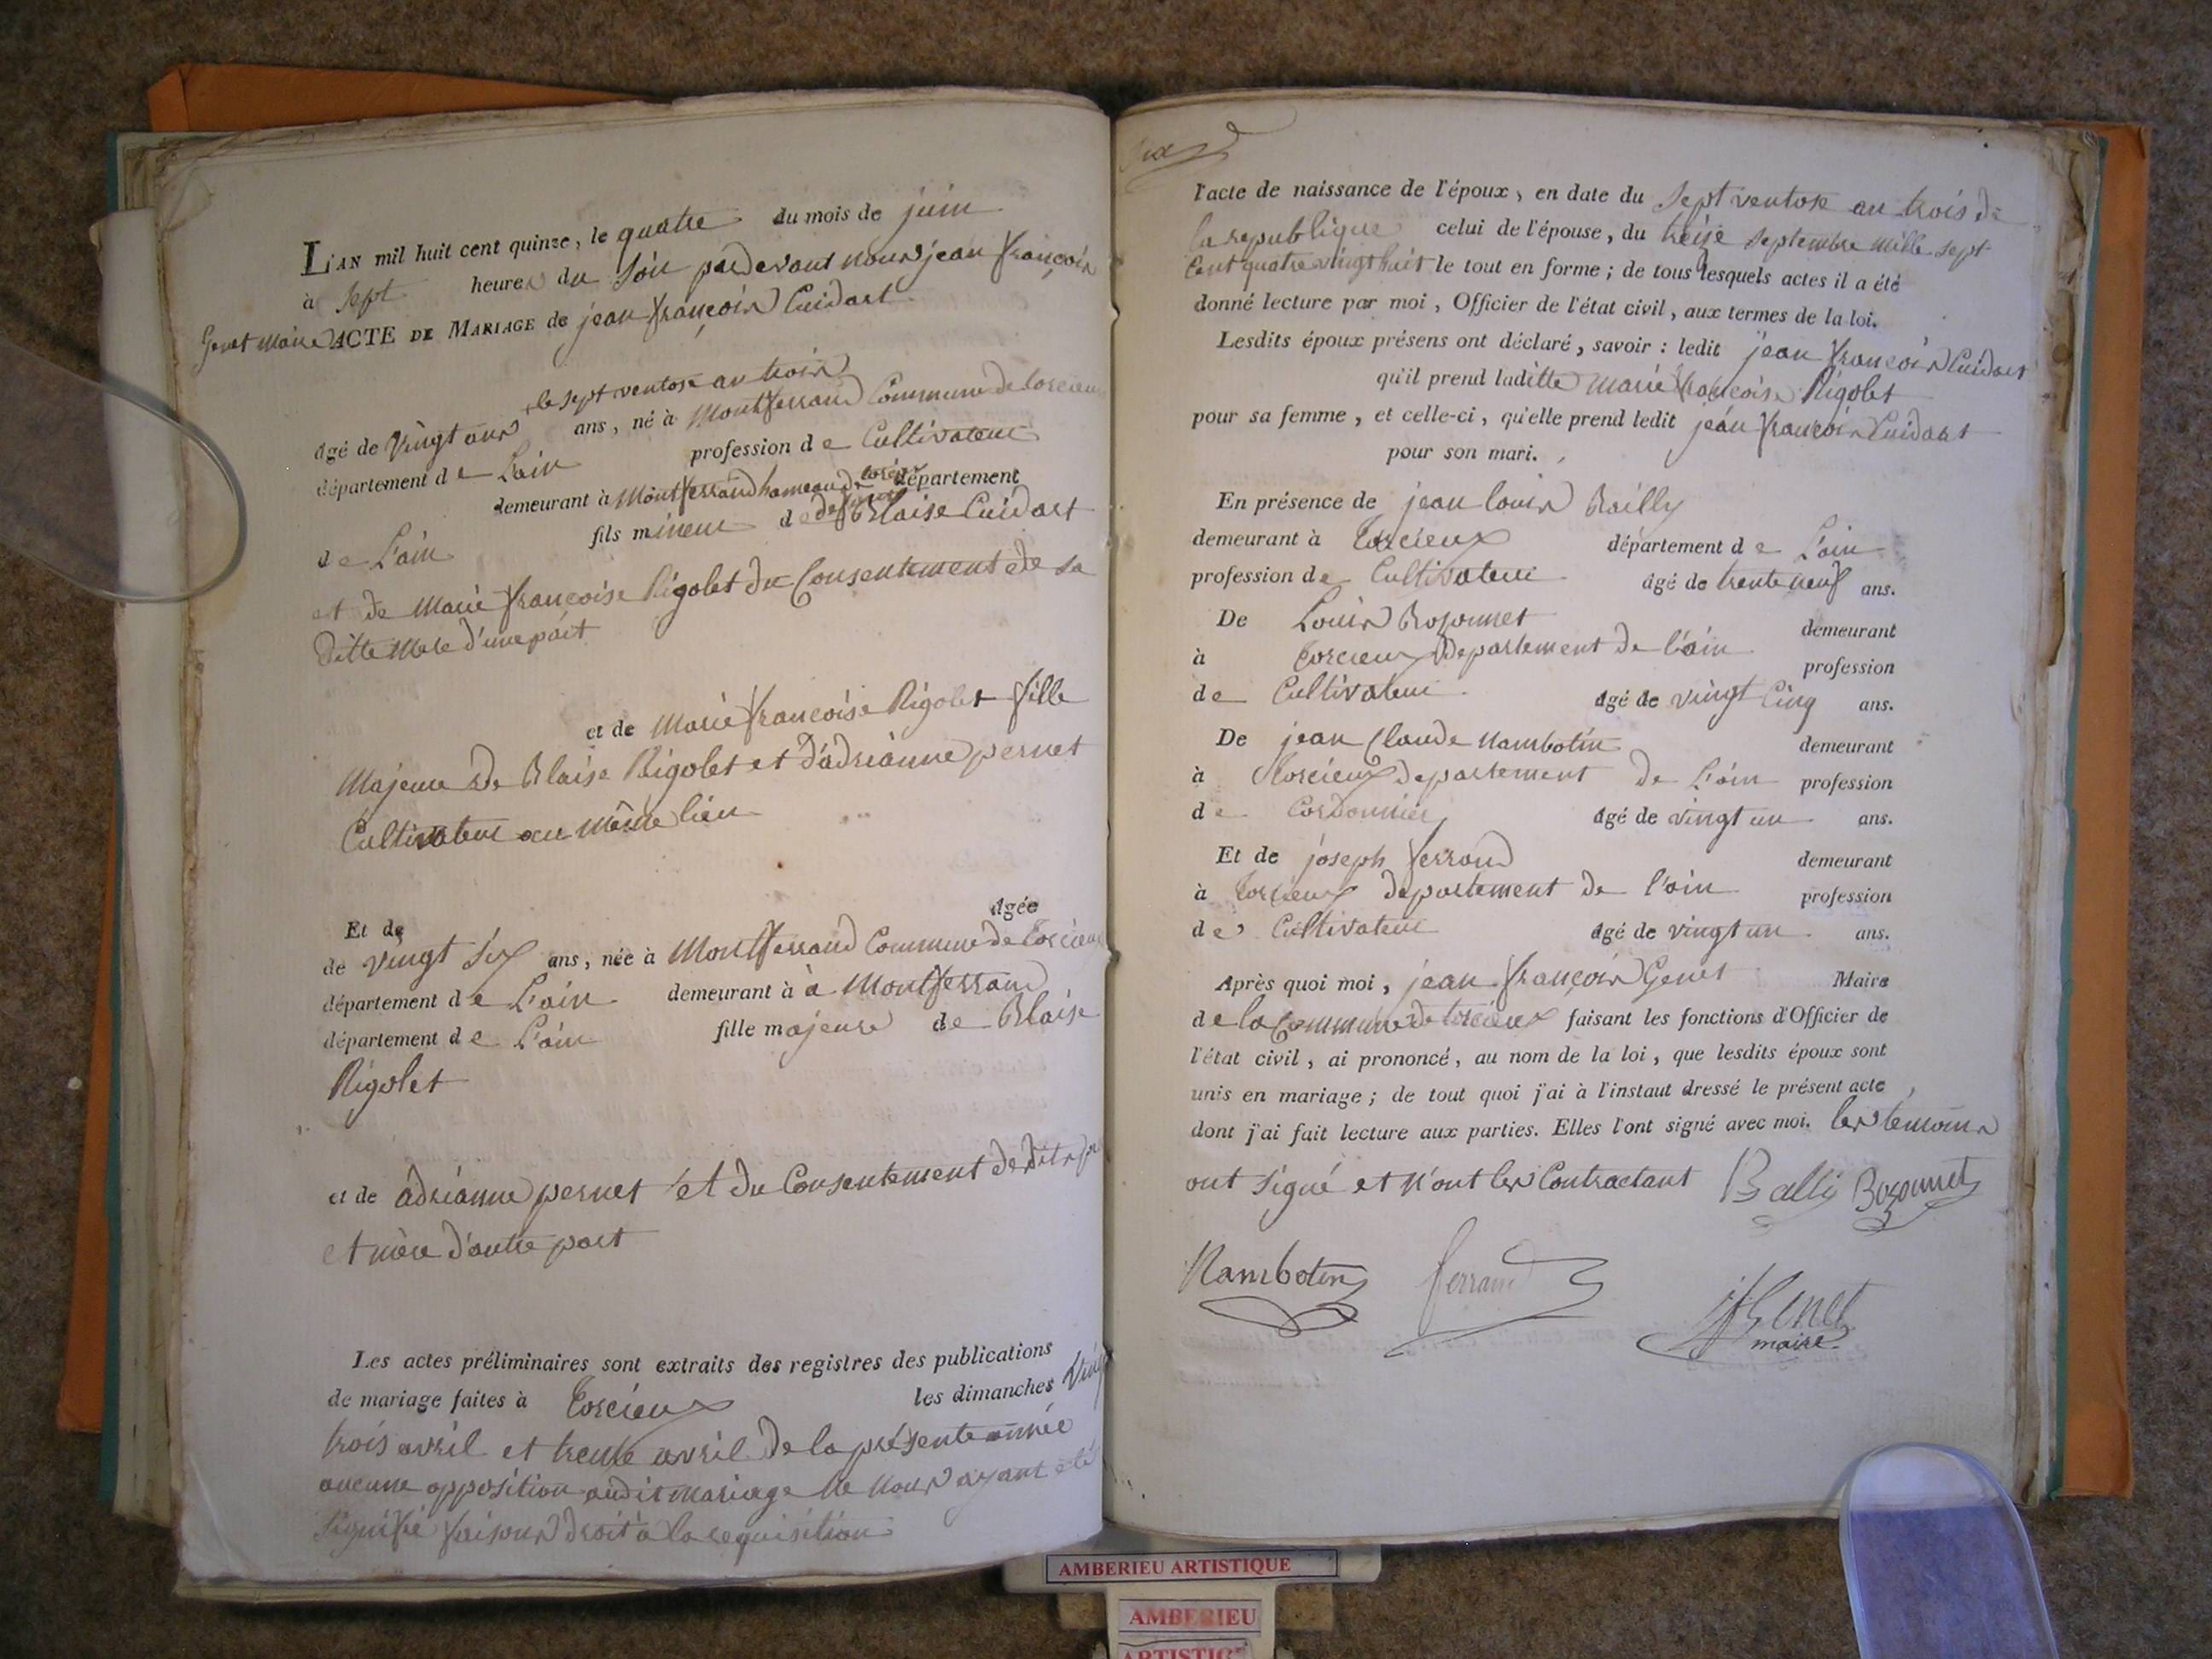 L'AN mil huit cent quinze, le quatre du mois de juin
à sept heures du soir pardevant nous jean françois
Genet Maire ACTE DE MARIAGE de jean françois Cuidart
le sept ventose an trois
âgé de Vingt ans ans, né à Montferrand Commune de torcieux
département de Lain profession de Cultivateur
demeurant à Montferrand hameau de département
de L'ain fils mineur de Blaise Cuidart
et de Marie françoise Rigolet du Consentement de sa
ditte Mere d'une part
et de Marie françoise Rigolet fille
Majeure de Blaise Rigolet et d'adrianne pernet
Cultivateur au même lieu
Et de âgée
de vingt six ans, née à Montferrand Commune de torcieux
département de L'ain demeurant à à Montferrand
département de L'ain fille majeure de Blaise
Rigolet
et de adrianne pernet et du Consentement
et mère d'autre part
Les actes préliminaires sont extraits des registres des publications
de mariage faites à Torcieux les dimanches
trois avril et trente avril de la présente année
aucune opposition audit mariage ne nous ayant été
signifié faisons droit à la requisition
l'acte de naissance de l'époux, en date du sept ventose an trois de
la republique celui de l'épouse, du treize septembre mille sept
Cent quatre vingt huit le tout en forme; de tous lesquels actes il a été
donné lecture par moi, Officier de l'état civil, aux termes de la loi.
Lesdits époux présens ont déclaré, savoir: ledit jean françois Cuidart
qu'il prend laditte Marie françoise Rigolet
pour sa femme, et celle-ci, qu'elle prend ledit jean françois Cuidart
pour son mari.
En présence de jean louis Bailly
demeurant à Torcieux département de L'ain
profession de Cultivateur âgé de trente neuf ans.
De Louis Bozonnet demeurant
à Torcieux departement de l'ain profession
de Cultivateur âgé de vingt Cinq ans.
De jean Claude Nambotin demeurant
à Torcieux departement de L'ain profession
de Cordonnier âgé de vingt un ans.
Et de joseph ferrand demeurant
à Torcieux departement de l'ain profession
de Cultivateur âgé de vingt un ans.
Après quoi moi, jean françois Genet Maire
de la Commune de torcieux faisant les fonctions d'Officier de
l'état civil, ai prononcé, au nom de la loi, que lesdits époux sont
unis en mariage; de tout quoi j'ai à l'instaut dressé le présent acte
dont j'ai fait lecture aux parties. Elles l'ont signé avec moi. les temoins
ont signé et n'ont les Contractant Bally Bozonnet
Nambotin ferrand
jf Genet
maire
AMBERIEU ARTISTIQUE
AMBERIEU